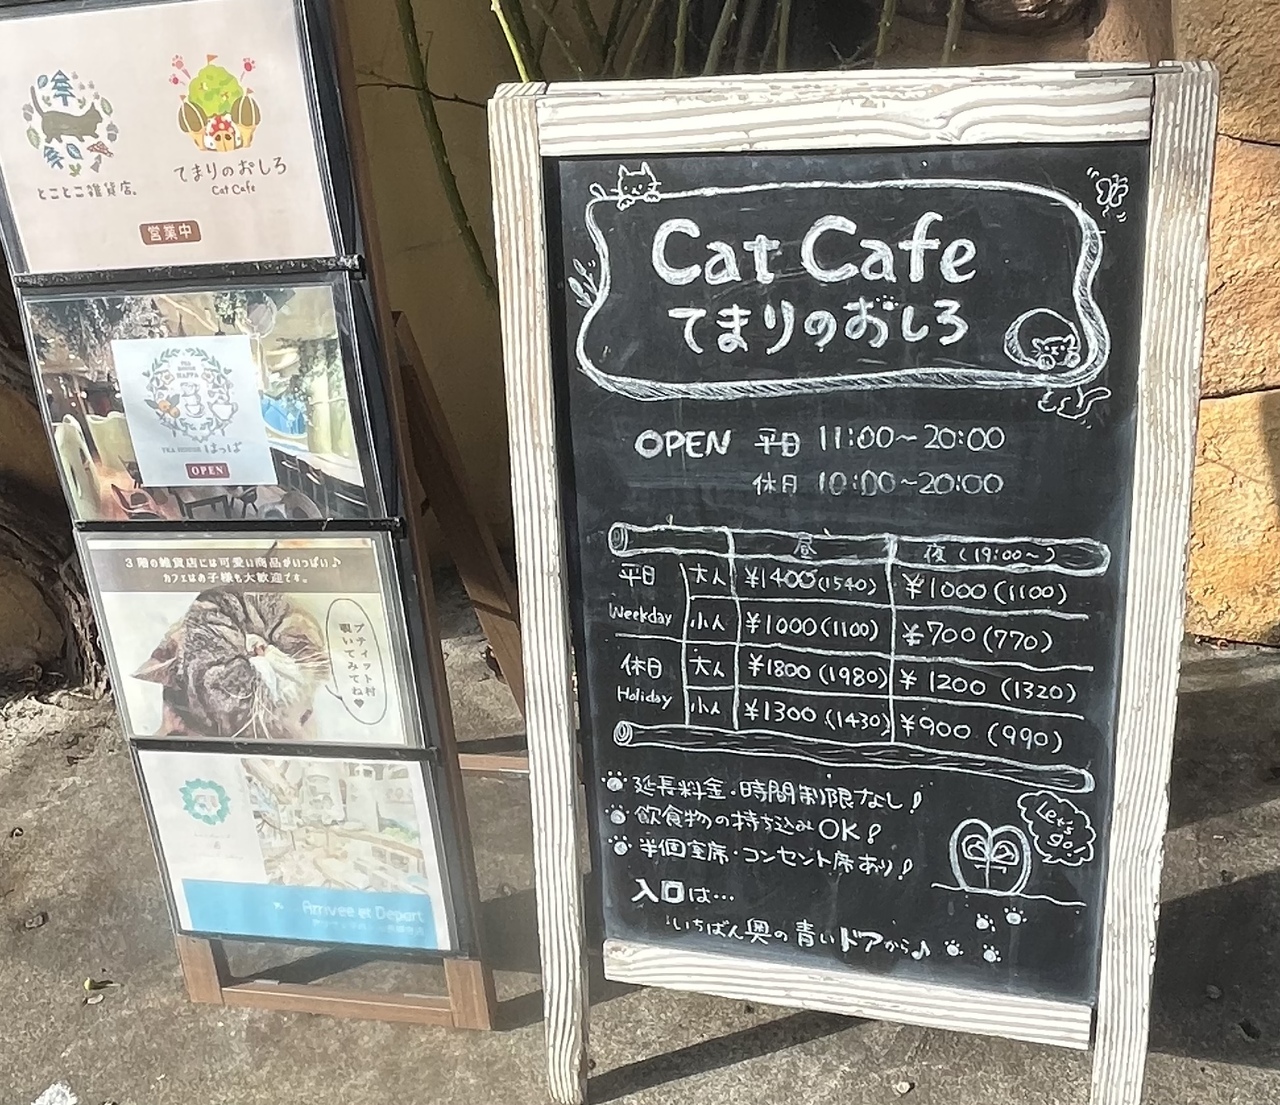 とことこ雑貨店。
てまりのおしろ
Cat Cafe
営業中
TEA HOUSE はっぱ
OPEN
3階の雑貨店には可愛い商品がいっぱい♪
カフェはお子様も大歓迎です。
プティット村
覗いてみてね♥
Arrivee et Depart
Cat Cafe
てまりのおしろ
OPEN 平日 11:00~20:00
休日 10:00~20:00
昼 夜(19:00~)
平日 大人 ¥1400(1540) ¥1000(1100)
Weekday 小人 ¥1000(1100) ¥700(770)
休日 大人 ¥1800(1980) ¥1200(1320)
Holiday 小人 ¥1300(1430) ¥900(990)
延長料金・時間制限なし!
飲食物の持ち込みOK!
半個室席・コンセント席あり!
Let's go!
入口は…
いちばん奥の青いドアから♪